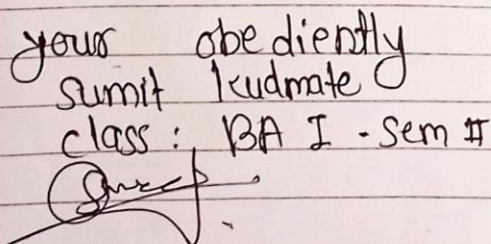 your obediently
sumit kudmate
class : BA I - Sem II